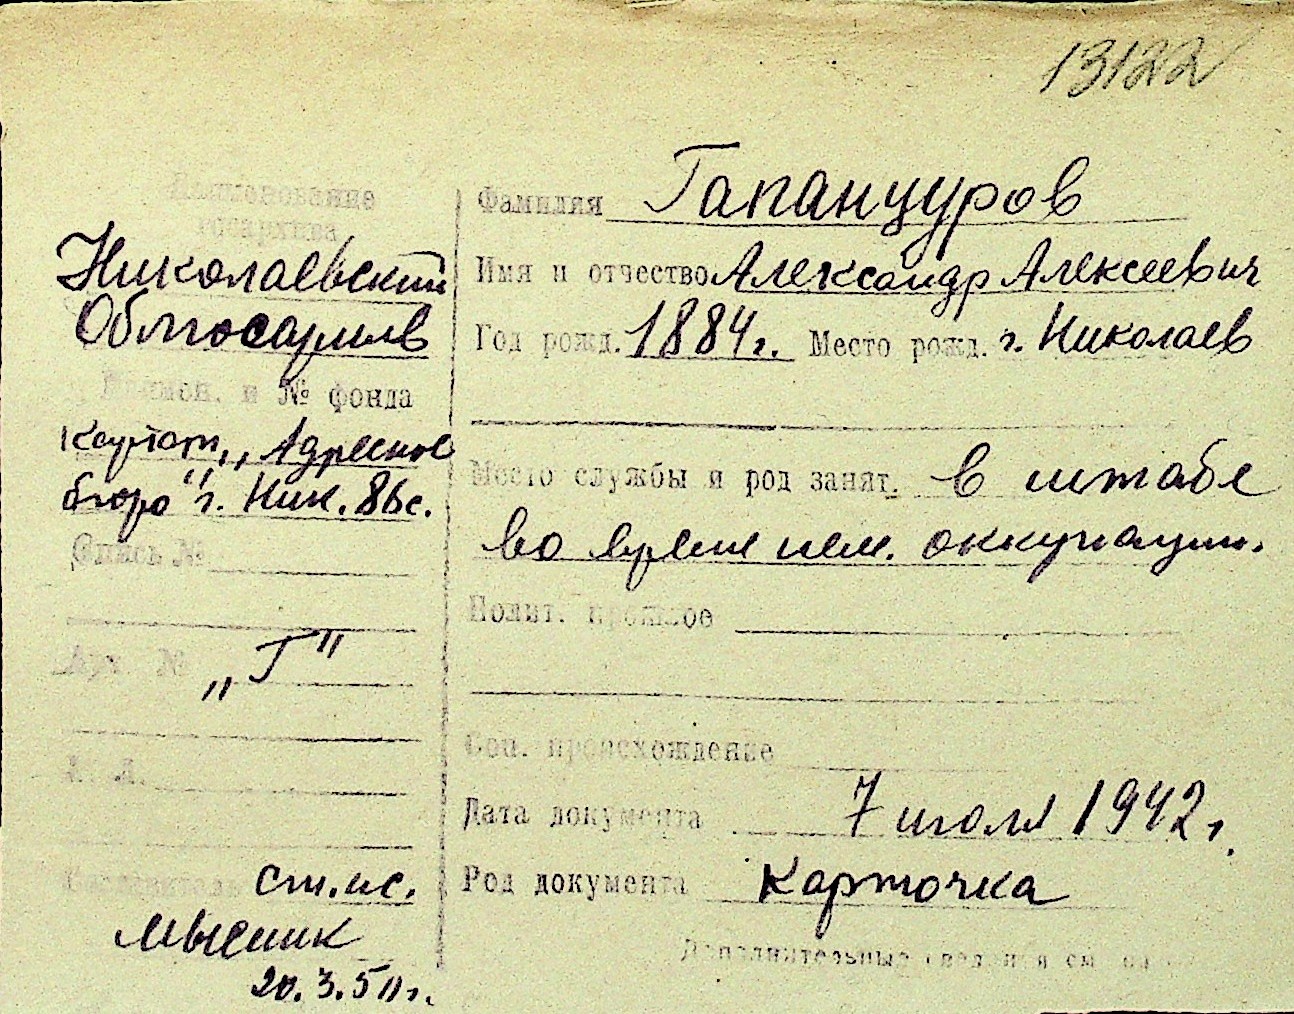 13122
Наименование
госархива
Николаевский
Облгосархив
Наимен. и № фонда
Картот. „Адресное
бюро" г. Ник. 86с.
Опись №
Арх. № „Г"
Л. Л.
Составитель ст. ис.
20.3.50 г.
Фамилия Гапанцуров
Имя и отчество Александр Алексеевич
Год рожд. 1884 г. Место рожд. г. Николаев
Место службы и род занят. в штабе
во время нем. оккупации.
Полит. прошлое
Соц. происхождение
Дата документа 7 июля 1942 г.
Род документа карточка
Дополнительные сведения см. на